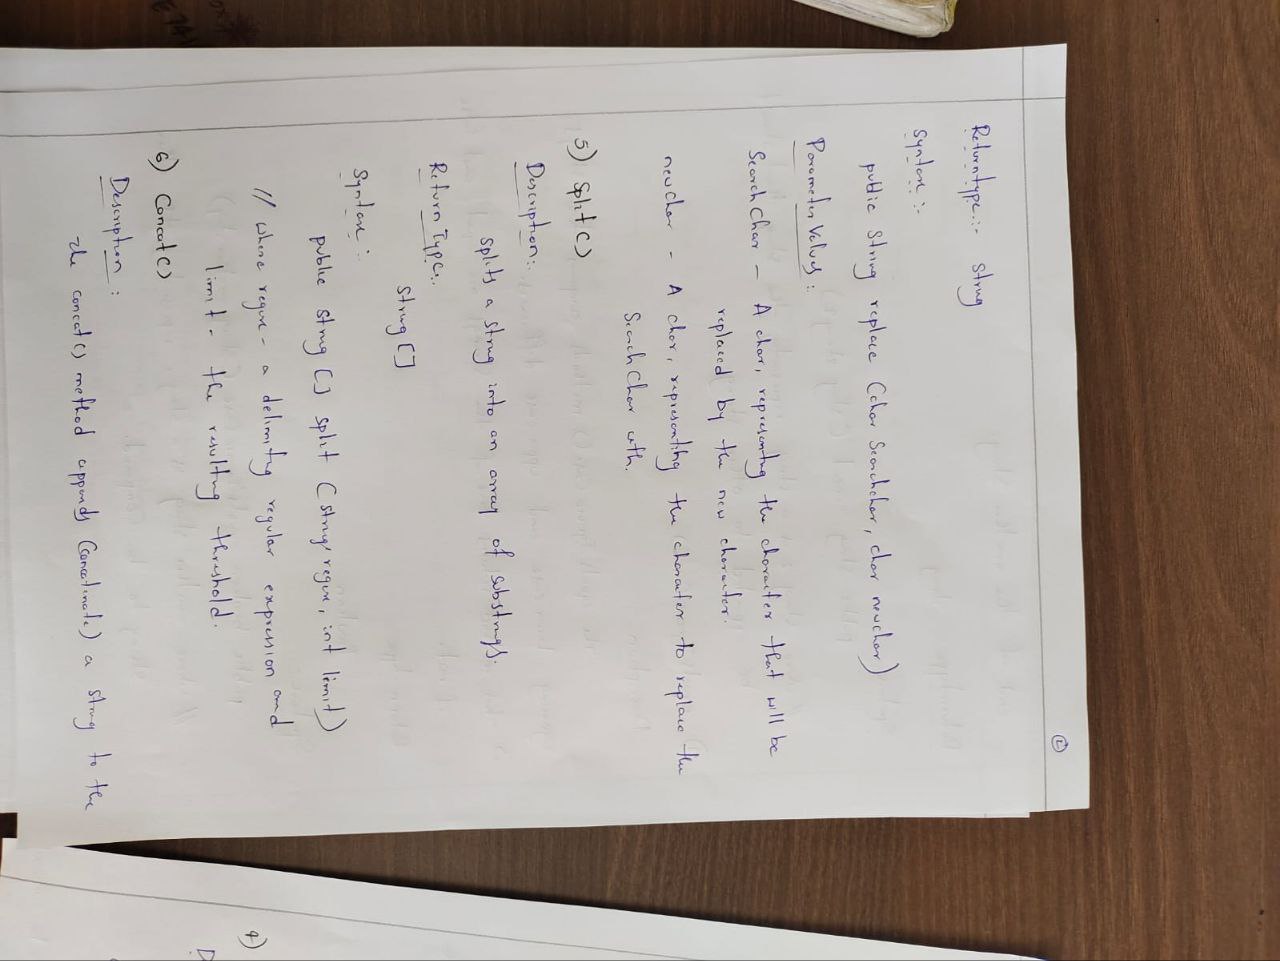 2
Return type:- String
Syntax:-
public String replace (char Searchchar, char newchar)
Parameter Values:
SearchChar - A char, representing the character that will be
replaced by the new character.
newchar - A char, representing the character to replace the
SearchChar with.
5) Split()
Description:.
Splits a string into an array of substrings.
Return Type:.
String []
Syntax:
public String [] split (String regex, int limit)
// where regex - a delimiting regular expression and
limit - the resulting threshold.
6) Concat()
Description:
The concat() method appends (concatinate) a string to the
4)